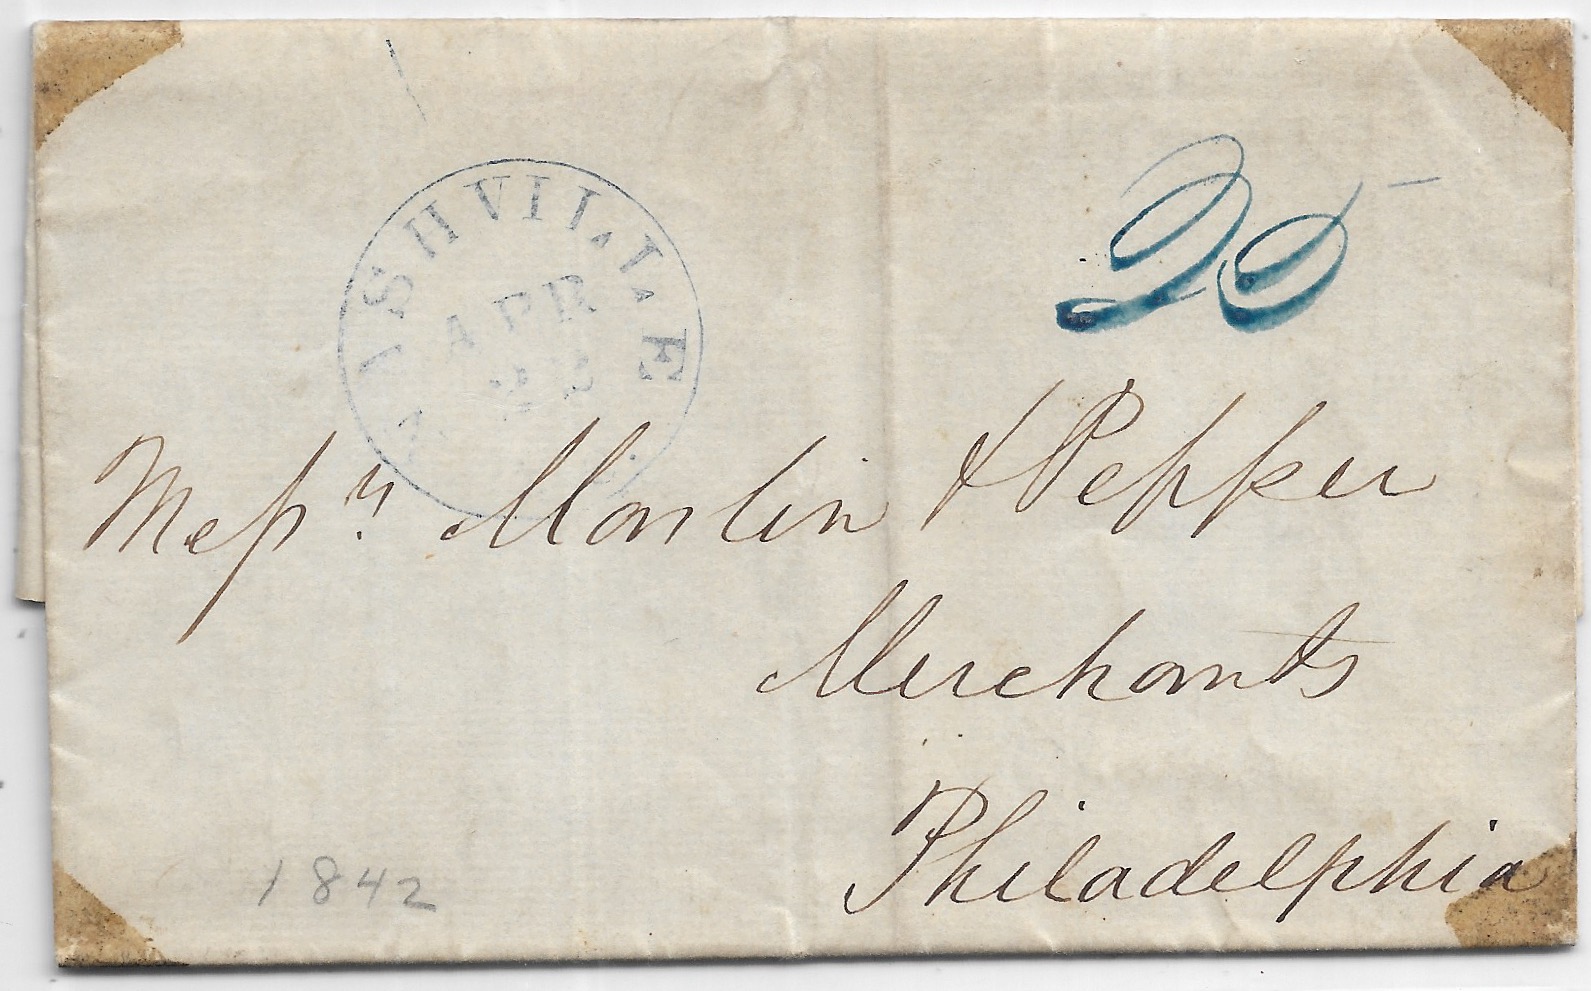 NASHVILLE
APR
22
25
Messrs Martin & Pepper
Merchants
Philadelphia
1842